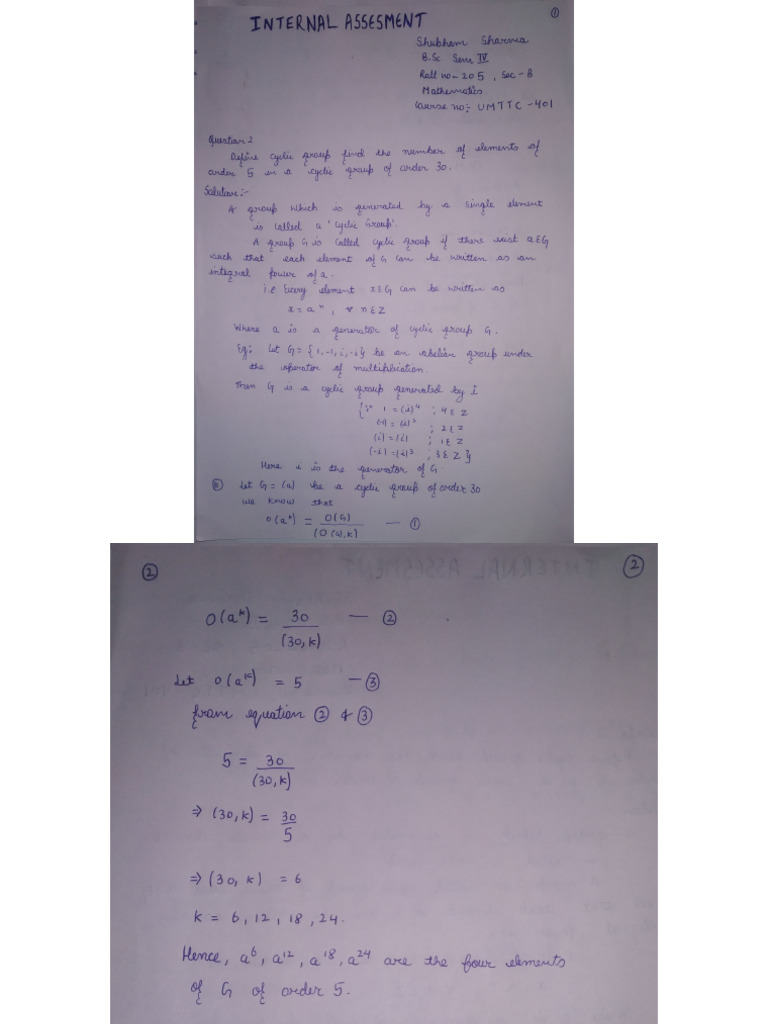 INTERNAL ASSESMENT
①
Shubham Sharma
B.Sc Sem IV
Roll no- 205 , Sec - B
Mathematics
Course no:- UMTTC -401
Question 2
Define cyclic group find the number of elements of
order 5 in a cyclic group of order 30.
Solution:-
A group which is generated by a single element
is called a 'Cyclic Group'.
A group G is called cyclic group if there exist a∈G
such that each element of G can be written as an
integral power of a.
i.e Every element x∈G can be written as
x = aⁿ , ∀ n∈Z
Where a is a generator of cyclic group G.
Eg:- Let G = {1,-1,i,-i} be an abelian group under
the operator of multiplication.
Then G is a cyclic group generated by i
{∵ 1 = (i)⁴ ; 4∈Z
(-1) = (i)² ; 2∈Z
(i) = (i) ; 1∈Z
(-i) = (i)³ ; 3∈Z}
Here i is the generator of G.
Let G = (a) be a cyclic group of order 30
we know that
O(aᵏ) = O(G) / (O(a),K) — ①
② ②
O(aᵏ) = 30 / (30,K) — ②
Let O(aᵏ) = 5 — ③
from equation ② & ③
5 = 30 / (30,K)
⇒ (30,K) = 30 / 5
⇒ (30, K) = 6
K = 6, 12, 18, 24.
Hence, a⁶, a¹², a¹⁸, a²⁴ are the four elements
of G of order 5.